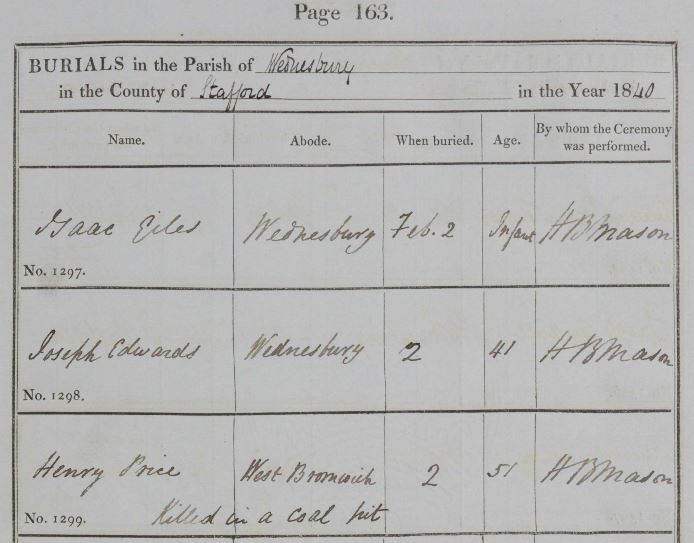 Page 163.
BURIALS in the Parish of Wednesbury
in the County of Stafford in the Year 1840
Name. Abode. When buried. Age. By whom the Ceremony was performed.
Isaac Giles Wednesbury Feb. 2 Infant H B Mason
No. 1297.
Joseph Edwards Wednesbury 2 41 H B Mason
No. 1298.
Henry Price West Bromwich 2 51 H B Mason
No. 1299. Killed in a coal pit